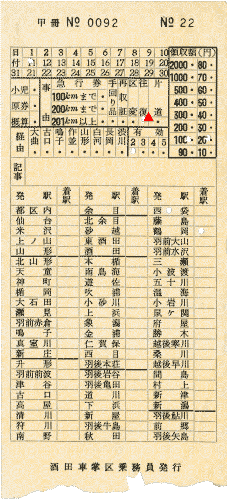 甲冊 № 0092 № 22
日 1 2 3 4 5 6 7 8 9 10 領収額(円)
付 11 12 13 14 15 16 17 18 19 20
21 22 23 24 25 26 27 28 29 30
31
2000 80
1000 70
500 60
400 50
300 40
200 30
100 20
90 10
小児
原券
概算
事由
急行券
100kmまで
200kmまで
201km以上
手回り品
再収証
区変
往復
片道
経由
大曲
古口
鳴子
小笠
山形
白河
長岡
有効
2 3 4 5
記事
発駅 着駅 発駅 着駅 発駅 着駅
都区内 余目 西袋
仙台 北余目 藤島
米沢 砂越 鶴岡
上ノ山 東酒田 羽前大山
山形 酒田 羽前水沢
北山形 本楯 三瀬
天童 南鳥海 小波渡
神町 遊佐 五十川
楯岡 吹浦 温海
大石田 小砂川 小岩川
瀬見 上浜 鼠ヶ関
羽前赤倉 象潟 府屋
鳴子 金浦 勝木
真室川 仁賀保 越後寒川
新庄 西目 桑川
升形 羽後本荘 越後早川
羽前前波 羽後岩谷 間島
津谷 羽後亀田 村上
古口 道川 新津
高屋 下浜 新潟
清川 新屋 羽後鮎川
狩川 羽後牛島 前郷
南野 秋田 羽後矢島
酒田車掌区乗務員発行